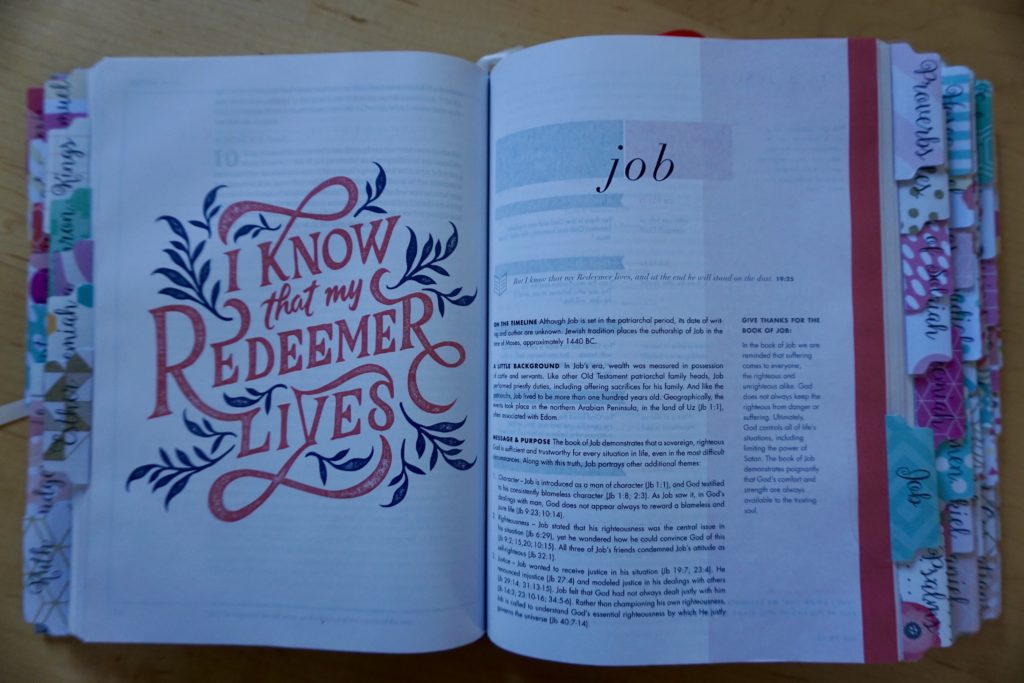 I KNOW
that my
REDEEMER
LIVES
job
But I know that my Redeemer lives, and at the end he will stand on the dust. 19:25
ON THE TIMELINE Although Job is set in the patriarchal period, its date of writ-
ing and author are unknown. Jewish tradition places the authorship of Job in the
time of Moses, approximately 1440 BC.
A LITTLE BACKGROUND In Job's era, wealth was measured in possession
of cattle and servants. Like other Old Testament patriarchal family heads, Job
performed priestly duties, including offering sacrifices for his family. And like the
patriarchs, Job lived to be more than one hundred years old. Geographically, the
events took place in the northern Arabian Peninsula, in the land of Uz (Jb 1:1),
often associated with Edom.
MESSAGE & PURPOSE The book of Job demonstrates that a sovereign, righteous
God is sufficient and trustworthy for every situation in life, even in the most difficult
circumstances. Along with this truth, Job portrays other additional themes:
1. Character – Job is introduced as a man of character (Jb 1:1), and God testified
to his consistently blameless character (Jb 1:8; 2:3). As Job saw it, in God's
dealings with man, God does not appear always to reward a blameless and
pure life (Jb 9:23; 10:14).
2. Righteousness – Job stated that his righteousness was the central issue in
his situation (Jb 6:29), yet he wondered how he could convince God of this
(Jb 9:2,15,20; 10:15). All three of Job's friends condemned Job's attitude as
self-righteous (Jb 32:1).
3. Justice – Job wanted to receive justice in his situation (Jb 19:7; 23:4). He
renounced injustice (Jb 27:4) and modeled justice in his dealings with others
(Jb 29:14; 31:13-15). Job felt that God had not always dealt justly with him
(Jb 14:3; 23:10-16; 34:5-6). Rather than championing his own righteousness,
Job is called to understand God's essential righteousness by which He justly
governs the universe (Jb 40:7-14).
GIVE THANKS FOR THE
BOOK OF JOB:
In the book of Job we are
reminded that suffering
comes to everyone,
the righteous and
unrighteous alike. God
does not always keep the
righteous from danger or
suffering. Ultimately,
God controls all of life's
situations, including
limiting the power of
Satan. The book of Job
demonstrates poignantly
that God's comfort and
strength are always
available to the trusting
soul.
Kings
Ruth
Proverbs
Job
Psalms